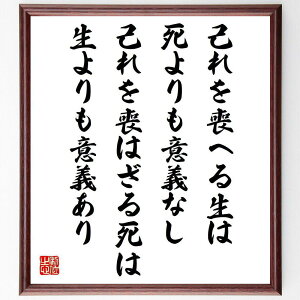 己れを喪へる生は
死よりも意義なし
己れを喪はざる死は
生よりも意義あり